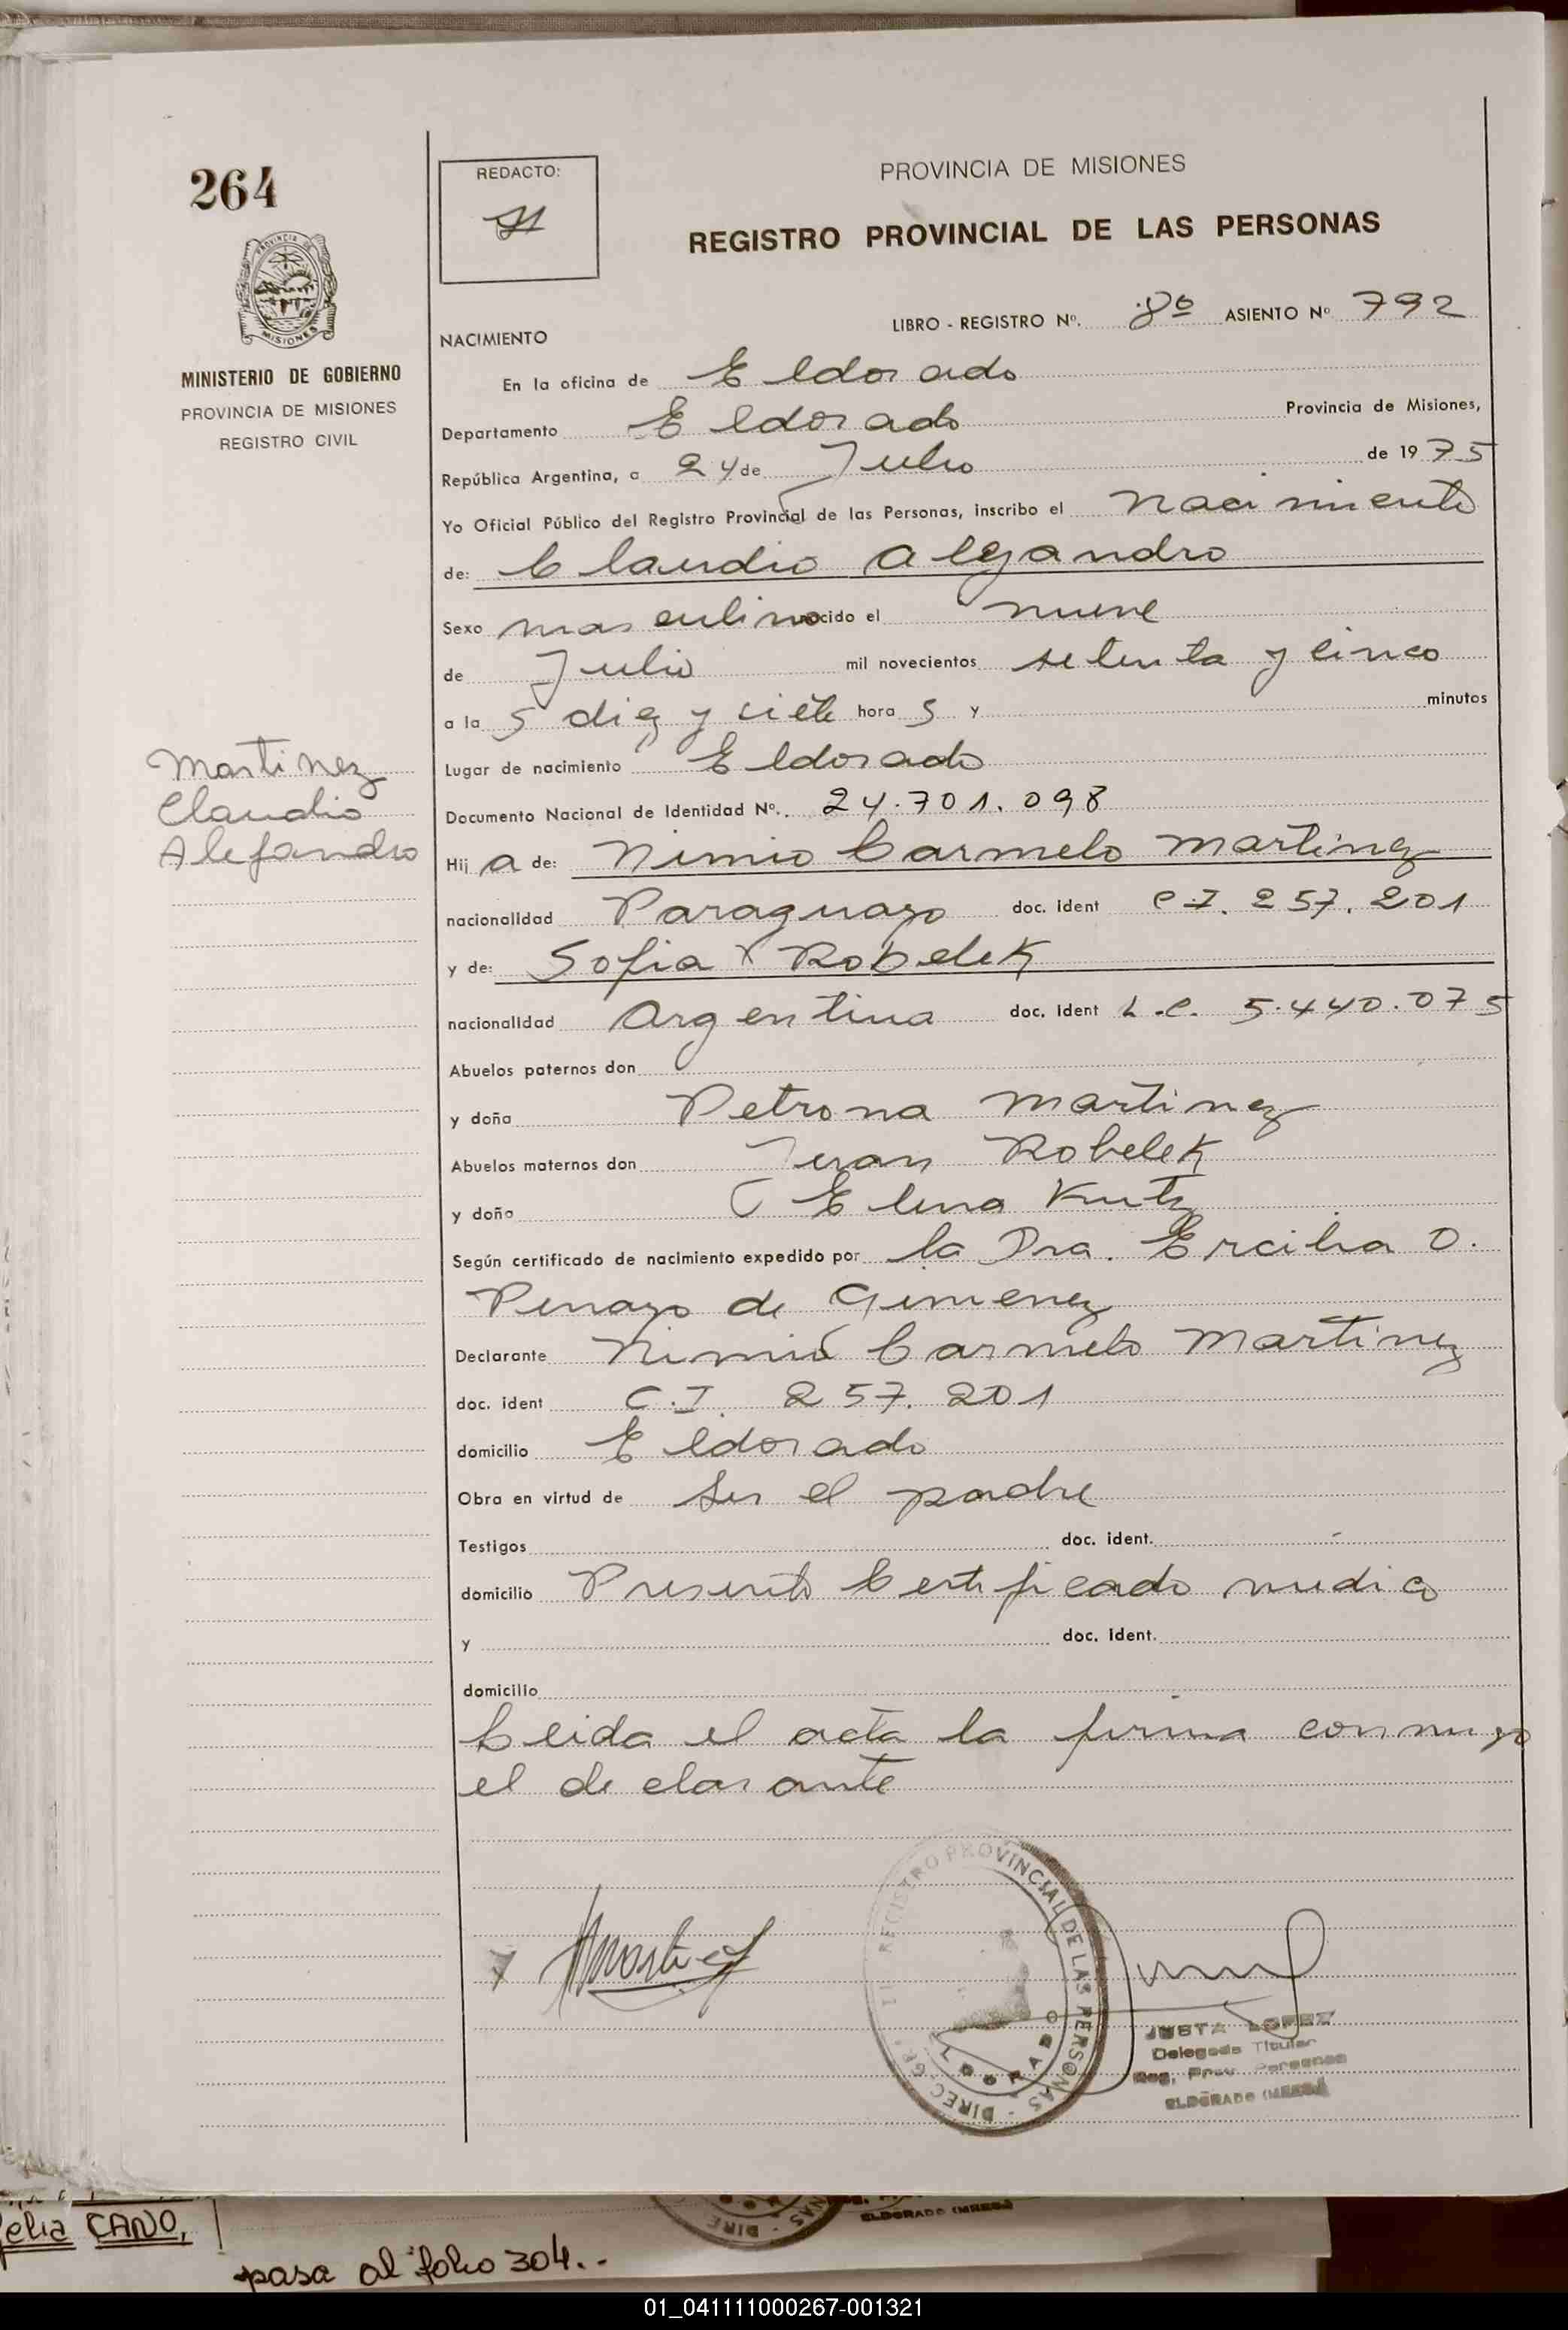 264
REDACTO:
PROVINCIA DE MISIONES
REGISTRO PROVINCIAL DE LAS PERSONAS
PROVINCIA DE
MISIONES
MINISTERIO DE GOBIERNO
PROVINCIA DE MISIONES
REGISTRO CIVIL
LIBRO - REGISTRO Nº. 8º ASIENTO Nº 792
NACIMIENTO
En la oficina de Eldorado
Departamento Eldorado Provincia de Misiones,
República Argentina, a 24 de Julio de 1975
Yo Oficial Público del Registro Provincial de las Personas, inscribo el nacimiento
de: Claudio Alejandro
Sexo masculino nacido el nueve
de Julio mil novecientos setenta y cinco
a la s diez y siete hora s y minutos
Lugar de nacimiento Eldorado
Documento Nacional de Identidad Nº. 24.701.098
Martinez
Claudio
Alejandro
Hij o de: Nimio Carmelo Martinez
nacionalidad Paraguayo doc. ident C.I. 257.201
y de: Sofia Robelek
nacionalidad Argentina doc. ident L.C. 5.440.075
Abuelos paternos don
y doña Petrona Martinez
Abuelos maternos don Juan Robelek
y doña Elena Kutz
Según certificado de nacimiento expedido por la Dra. Ercilia O.
Penayo de Gimenez
Declarante Nimio Carmelo Martinez
doc. ident C.I. 257.201
domicilio Eldorado
Obra en virtud de ser el padre
Testigos doc. ident.
domicilio Presento Certificado medico
y doc. ident.
domicilio
Leida el acta la firma conmigo
el declarante
REGISTRO PROVINCIAL DE LAS PERSONAS - DIREC. GRAL.
ELDORADO
JUSTA LOPEZ
Delegada Titular
Reg. Prov. Personas
ELDORADO (MNES.)
CANO,
ELDORADO (MNES.)
pasa al folio 304..
01_041111000267-001321